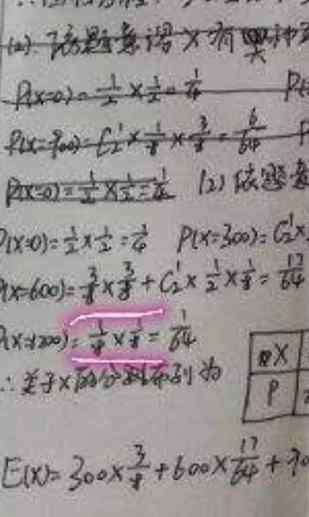 (2) 依题意得X有
P(X=0)=1/2×1/2=1/4 P(
P(X=900)=C₂¹×1/8×3/8=6/64 P
P(X=0)=1/2×1/2=1/4 (2)依题意
P(X=0)=1/2×1/2=1/4 P(X=300)=C₂¹×
P(X=600)=3/8×3/8+C₂¹×1/2×1/8=17/64
P(X=1200)=1/8×1/8=1/64
∴关于X的分布列为
X
P
E(X)=300×3/8+600×17/64+90